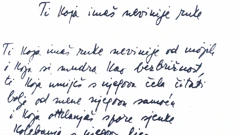 Ti koja imaš nevinije ruke
Ti koja imaš ruke nevinije od mojih
i koja si mudra kao bezbrižnost
ti koja umiješ s njegova čela čitati
bolje od mene njegovu samoću
i koja otklanjaš spore sjenke
kolebanja s njegova lica